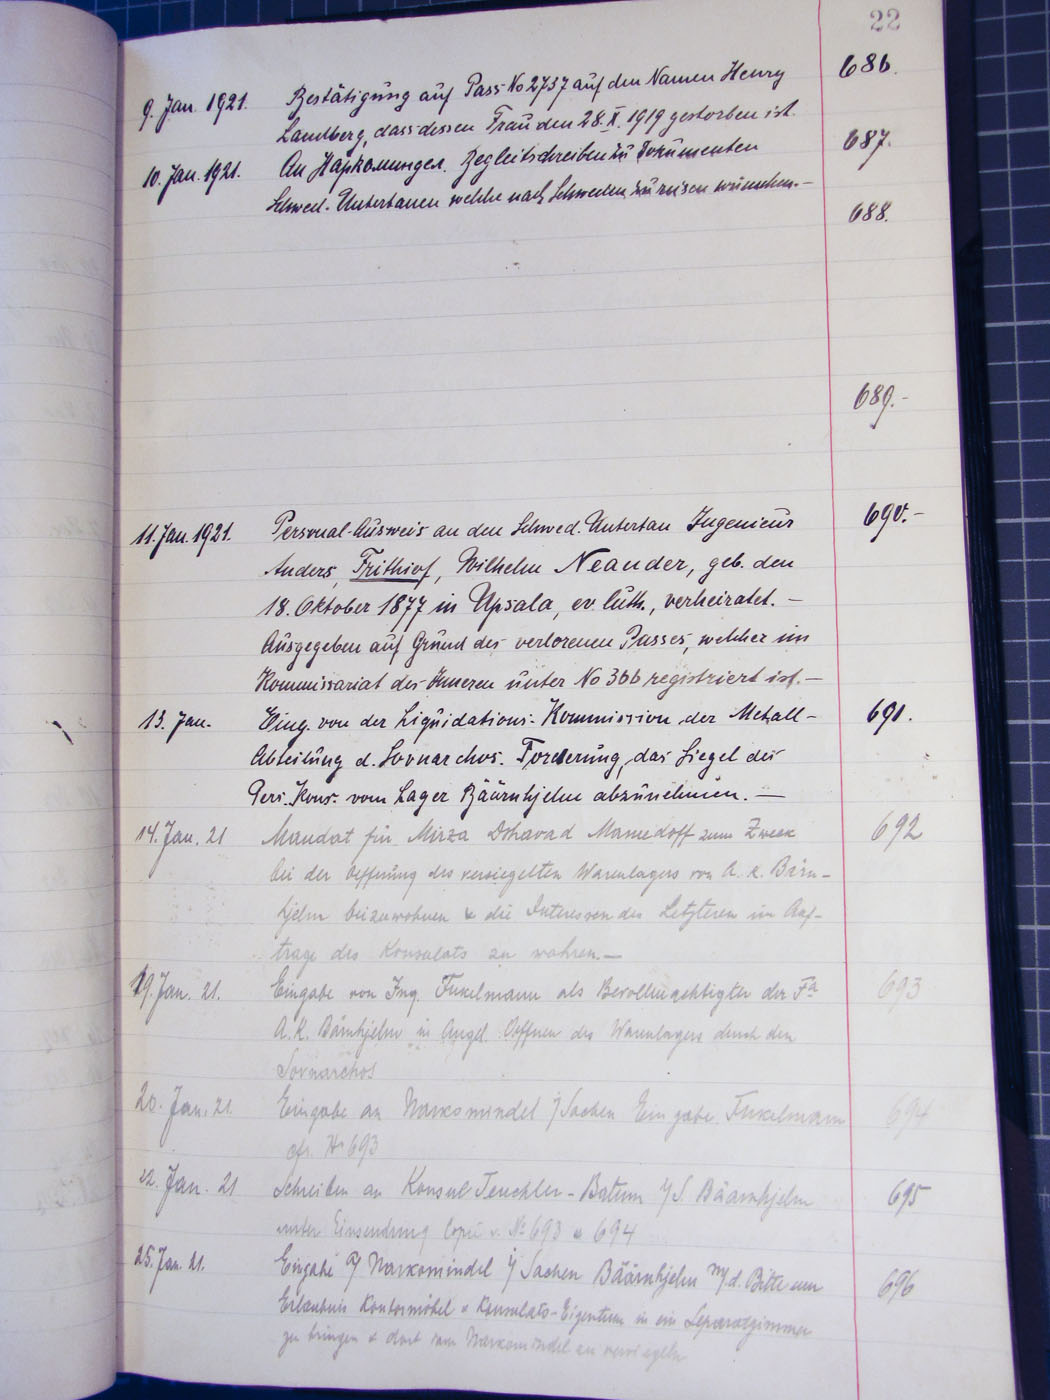 22
9. Jan. 1921. Bestätigung auf Pass No 2737 auf den Namen Henry 686.
Landberg, dass dessen Frau den 28. X. 1919 gestorben ist.
10. Jan. 1921. An Наркоминдел. Begleitschreiben zu Dokumenten 687.
Schwed. Untertanen welche nach Schweden zu reisen wünschen.–
688.
689.–
11. Jan. 1921. Personal-Ausweis an den Schwed. Untertan Ingenieur 690.–
Anders, Frithiof, Wilhelm Neander, geb. den
18. Oktober 1877 in Upsala, ev. luth., verheiratet.–
Ausgegeben auf Grund des verlorenen Passes, welcher im
Kommissariat des Inneren unter No 366 registriert ist.–
13. Jan. Eing. von der Liquidations-Kommission der Metall- 691.
Abteilung d. Sovnarchos. Forderung, das Siegel des
Pers. Kons. vom Lager Bäärnhjelm abzunehmen.–
14. Jan. 21 Mandat für Mirza Dshavad Mamedoff zum Zweck 692
bei der Oeffnung des versiegelten Warenlagers von A. K. Bärn-
hjelm beizuwohnen & die Interessen des Letzteren im Auf-
trage des Konsulats zu wahren.–
19. Jan. 21. Eingabe von Ing. Funkelmann als Bevollmächtigter der Fa 693
A. K. Bärnhjelm in Angel. Oeffnen des Warenlagers durch den
Sovnarchos
20. Jan. 21. Eingabe an Narkomindel i/Sachen Eingabe Funkelmann 694
cfr. No 693
22. Jan. 21 Schreiben an Konsul Teuchler-Batum i/S. Bäärnhjelm 695
unter Einsendung Copie v. No 693 & 694
25. Jan. 21. Eingabe a/ Narkomindel i/ Sachen Bäärnhjelm m/d. Bitte um 696
Erlaubnis Kontormöbel & Konsulats-Eigentum in ein Separatzimmer
zu bringen & dort vom Narkomindel zu versiegeln